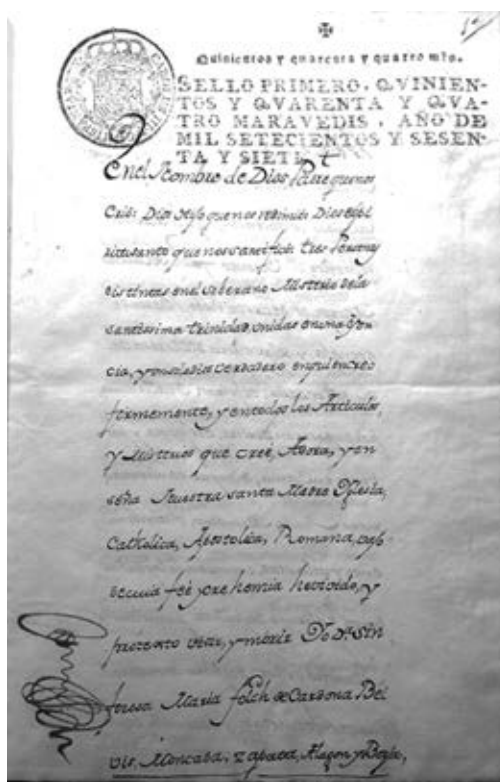 Quinientos y quarenta y quatro mrs.
SELLO PRIMERO, QVINIEN-
TOS Y QVARENTA Y QVA-
TRO MARAVEDIS, AÑO DE
MIL SETECIENTOS Y SESEN-
TA Y SIETE
En el Nombre de Dios Padre que nos
Crió: Dios Hijo que nos redimió: Dios Esp
iritu santo que nos santificó: tres Personas
distintas en el soberano Misterio de la
santissima trinidad, unidas en una
cia, y verdadero en quien creo
firmemente, y en todos los Articulos,
y Misterios que cree, Adora, y en
seña Nuestra santa Madre Yglesia,
Catholica, Apostolica, Romana,
cuia feé y he vivido, y
protexto vivir, y morir Yo Dª. Sin
foresa Maria folch de Cardona Bel
vis, Moncada, Zapata, Alagon y